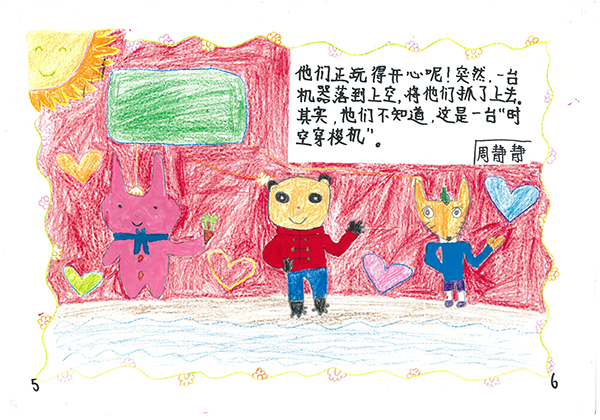 他们正玩得开心呢！突然，一台
机器落到上空，将他们抓了上去。
其实，他们不知道，这是一台“时
空穿梭机”。
周静静
5
6